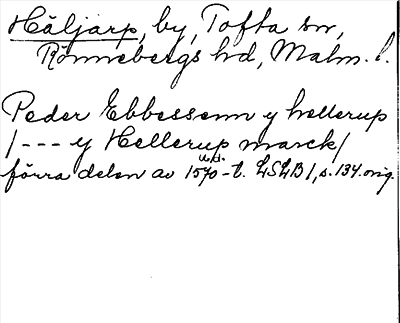 Häljarp, by, Tofta sn,
Rönnebergs hd, Malm. l.
Peder Ebbessenn y hellerup
/--- y Hellerup marck/
förra delen av 1570-t. LSLB 1, s. 134. orig.